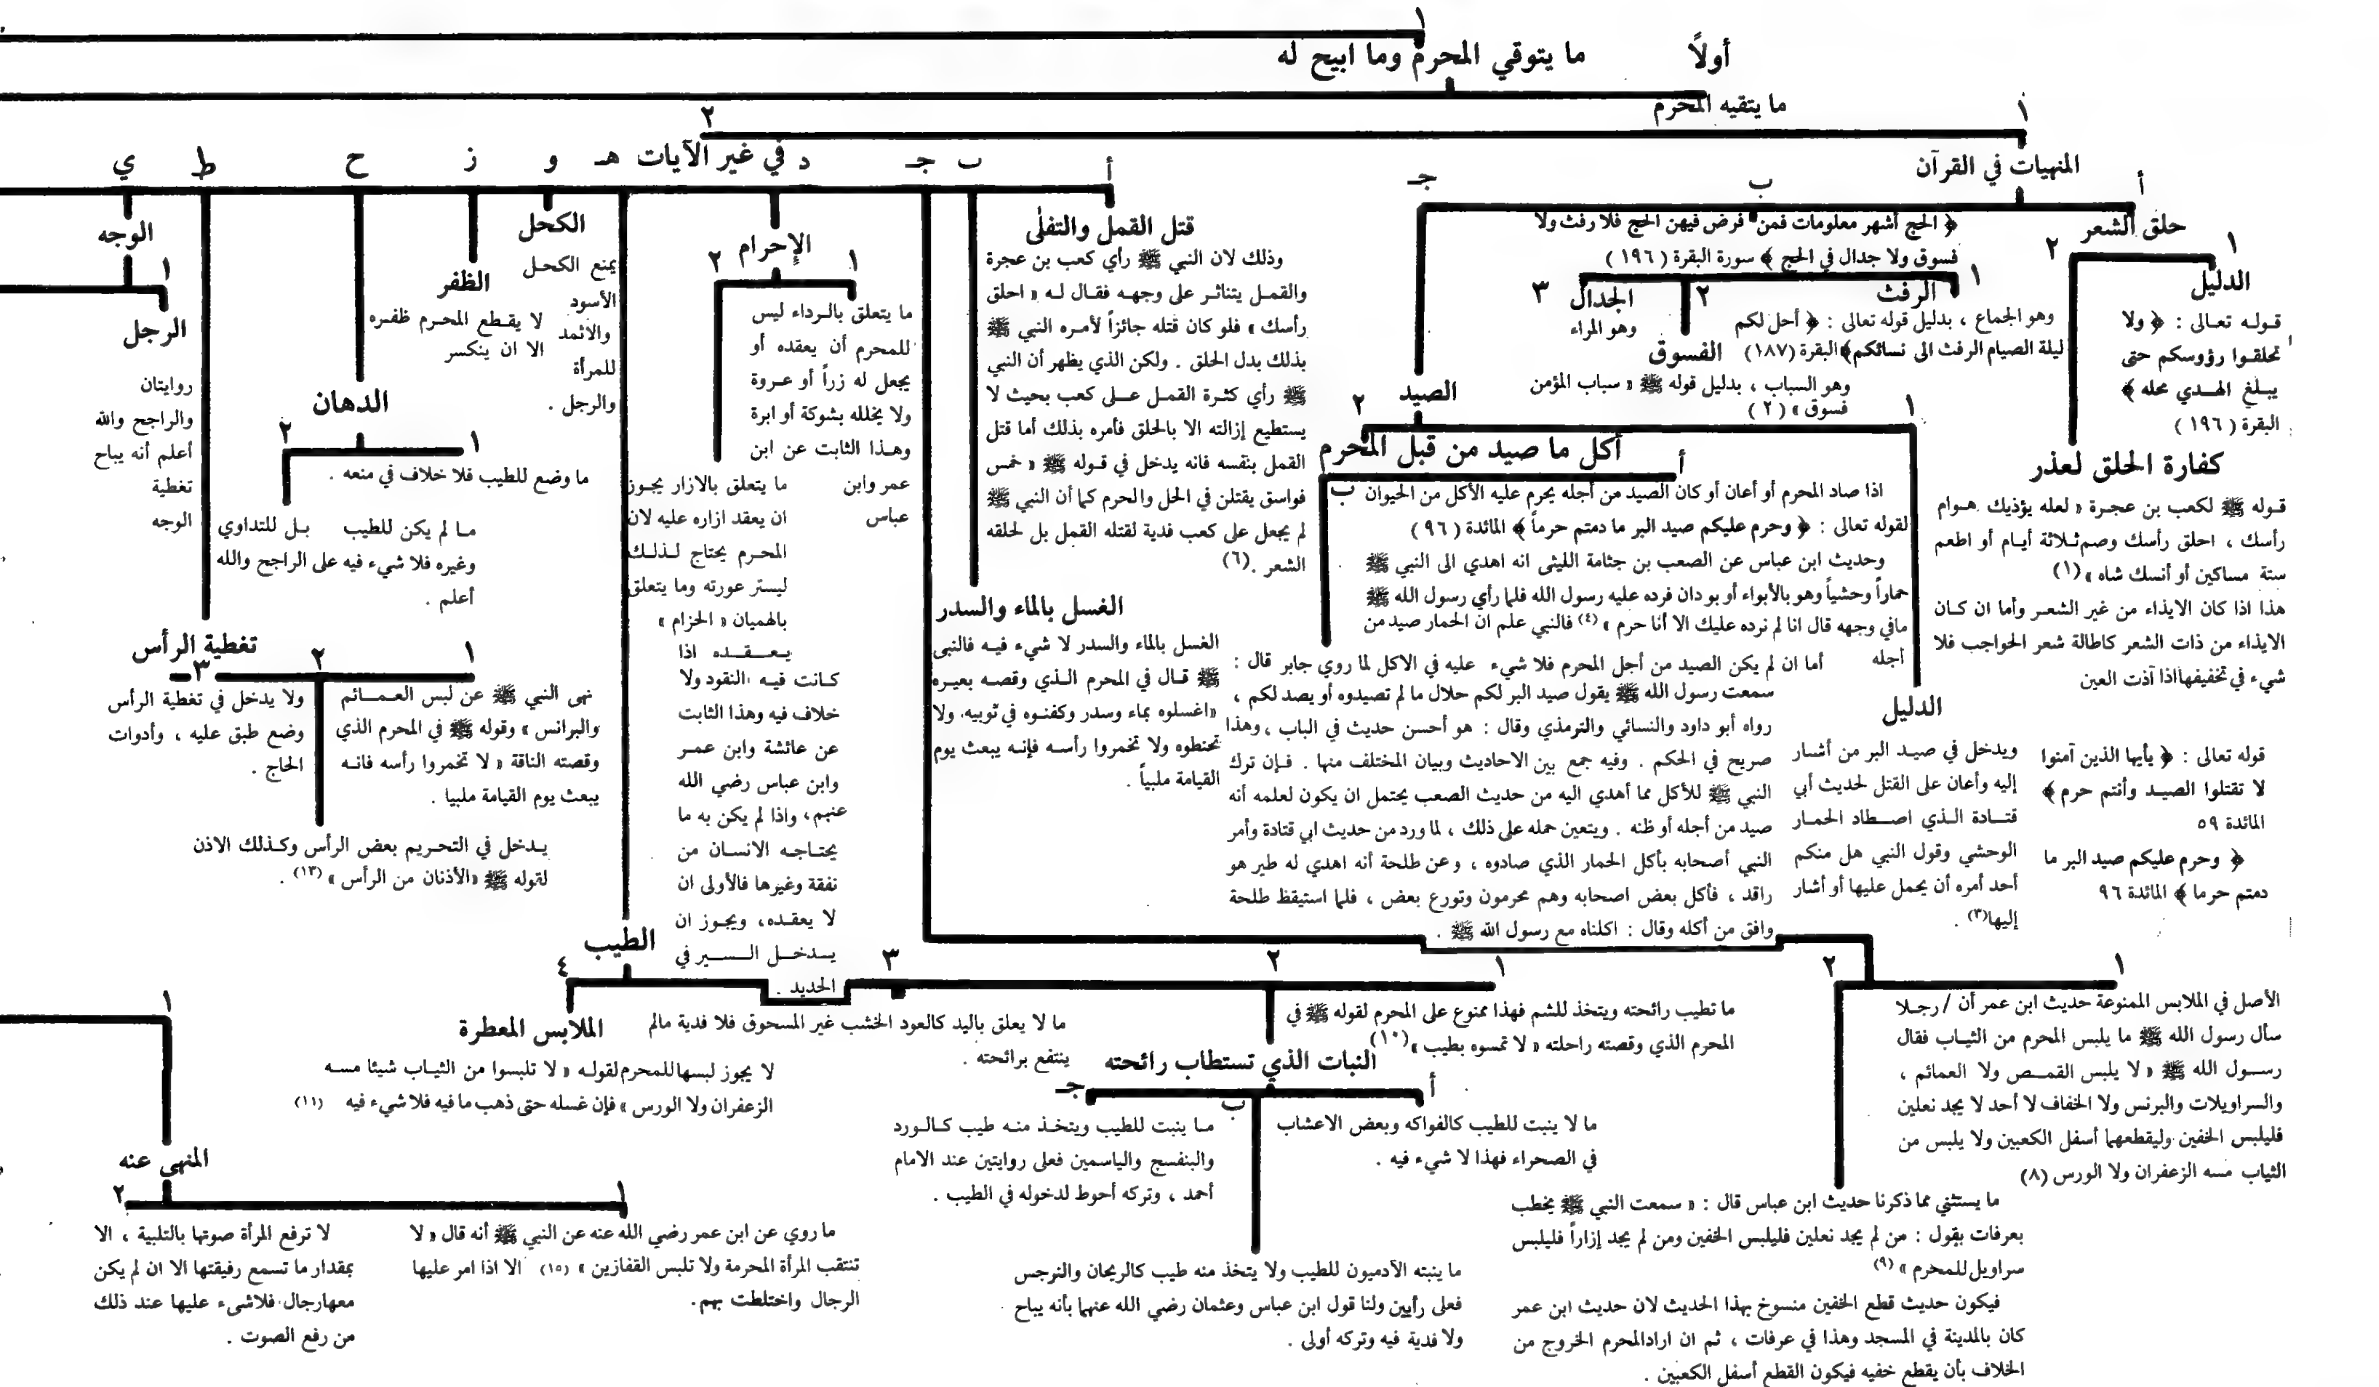 ١
أولاً ما يتوقي المحرم وما ابيح له
ما يتقيه المحرم
١ ٢
المنهيات في القرآن
في غير الآيات
أ ب جـ
حلق الشعر
١ ٢
الدليل
قوله تعالى : ﴿ ولا
تحلقوا رؤوسكم حتى
يبلغ الهدي محله ﴾
البقرة ( ١٩٦ )
كفارة الحلق لعذر
قوله ﷺ لكعب بن عجرة « لعله يؤذيك هوام
رأسك ، احلق رأسك وصم ثلاثة أيام أو اطعم
ستة مساكين أو أنسك شاه » (١)
هذا اذا كان الايذاء من غير الشعر وأما ان كان
الايذاء من ذات الشعر كاطالة شعر الحواجب فلا
شيء في تخفيفها اذا آذت العين
﴿ الحج أشهر معلومات فمن فرض فيهن الحج فلا رفث ولا
فسوق ولا جدال في الحج ﴾ سورة البقرة ( ١٩٦ )
١ ٢ ٣
الرفث
وهو الجماع ، بدليل قوله تعالى : ﴿ أحل لكم
ليلة الصيام الرفث الى نسائكم ﴾ البقرة (١٨٧)
الفسوق
وهو السباب ، بدليل قوله ﷺ « سباب المؤمن
فسوق » ( ٢ )
الجدال
وهو المراء
الصيد
١ ٢
الدليل
قوله تعالى : ﴿ يأيها الذين آمنوا
لا تقتلوا الصيد وأنتم حرم ﴾
المائدة ٥٩
﴿ وحرم عليكم صيد البر ما
دمتم حرما ﴾ المائدة ٩٦
ويدخل في صيد البر من أشار
إليه وأعان على القتل لحديث أبي
قتادة الذي اصطاد الحمار
الوحشي وقول النبي هل منكم
أحد أمره أن يحمل عليها أو أشار
إليها (٣) .
أكل ما صيد من قبل المحرم
أ ب
اذا صاد المحرم أو أعان أو كان الصيد من أجله يحرم عليه الأكل من الحيوان
لقوله تعالى : ﴿ وحرم عليكم صيد البر ما دمتم حرماً ﴾ المائدة ( ٩٦ )
وحديث ابن عباس عن الصعب بن جثامة الليثى انه اهدي الى النبي ﷺ
حماراً وحشياً وهو بالأبواء أو بودان فرده عليه رسول الله فلما رأي رسول الله ﷺ
مافي وجهه قال انا لم نرده عليك الا أنا حرم » (٤) فالنبي علم ان الحمار صيد من
أجله
أما ان لم يكن الصيد من أجل المحرم فلا شيء عليه في الاكل لما روي جابر قال :
سمعت رسول الله ﷺ يقول صيد البر لكم حلال ما لم تصيدوه أو يصد لكم ،
رواه أبو داود والنسائي والترمذي وقال : هو أحسن حديث في الباب ، وهذا
صريح في الحكم . وفيه جمع بين الاحاديث وبيان المختلف منها . فإن ترك
النبي ﷺ للأكل مما أهدي اليه من حديث الصعب يحتمل ان يكون لعلمه أنه
صيد من أجله أو ظنه . ويتعين حمله على ذلك ، لما ورد من حديث ابي قتادة وأمر
النبي أصحابه بأكل الحمار الذي صادوه ، وعن طلحة أنه اهدي له طير هو
راقد ، فأكل بعض اصحابه وهم محرمون وتورع بعض ، فلما استيقظ طلحة
وافق من أكله وقال : اكلناه مع رسول الله ﷺ .
أ ب جـ د هـ و ز ح ط ي
قتل القمل والتفلى
وذلك لان النبي ﷺ رأي كعب بن عجرة
والقمل يتناثر على وجهه فقال له « احلق
رأسك » فلو كان قتله جائزاً لأمره النبي ﷺ
بذلك بدل الحلق . ولكن الذي يظهر أن النبي
ﷺ رأي كثرة القمل على كعب بحيث لا
يستطيع إزالته الا بالحلق فأمره بذلك أما قتل
القمل بنفسه فانه يدخل في قوله ﷺ « خمس
فواسق يقتلن في الحل والحرم كما أن النبي ﷺ
لم يجعل على كعب فدية لقتله القمل بل لحلقه
الشعر . (٦)
الغسل بالماء والسدر
الغسل بالماء والسدر لا شيء فيه فالنبى
ﷺ قال في المحرم الذي وقصه بعيره
«اغسلوه بماء وسدر وكفنوه في ثوبيه. ولا
تحنطوه ولا تخمروا رأسه فإنه يبعث يوم
القيامة ملبياً .
١ ٢
الأصل في الملابس الممنوعة حديث ابن عمر أن / رجلا
سأل رسول الله ﷺ ما يلبس المحرم من الثياب فقال
رسول الله ﷺ « لا يلبس القمص ولا العمائم ،
والسراويلات والبرنس ولا الخفاف لا أحد لا يجد نعلين
فليلبس الخفين وليقطعهما أسفل الكعبين ولا يلبس من
الثياب مسه الزعفران ولا الورس (٨)
ما يستثني مما ذكرنا حديث ابن عباس قال : « سمعت النبي ﷺ يخطب
بعرفات بقول : من لم يجد نعلين فليلبس الخفين ومن لم يجد إزاراً فليلبس
سراويل للمحرم » (٩)
فيكون حديث قطع الخفين منسوخ بهذا الحديث لان حديث ابن عمر
كان بالمدينة في المسجد وهذا في عرفات ، ثم ان اراد المحرم الخروج من
الخلاف بأن يقطع خفيه فيكون القطع أسفل الكعبين .
الإحرام
١ ٢
ما يتعلق بالرداء ليس
للمحرم أن يعقده أو
يجعل له زراً أو عروة
ولا يخلله بشوكة أو ابرة
وهذا الثابت عن ابن
عمر وابن
عباس
ما يتعلق بالازار يجوز
ان يعقد ازاره عليه لان
المحرم يحتاج لذلك
ليستر عورته وما يتعلق
بالهميان « الحزام »
يعقده اذا
كانت فيه النقود ولا
خلاف فيه وهذا الثابت
عن عائشة وابن عمر
وابن عباس رضي الله
عنهم ، واذا لم يكن به ما
يحتاجه الانسان من
نفقة وغيرها فالأولى ان
لا يعقده، ويجوز ان
يدخل السير في
الحديد .
الطيب
١ ٢ ٣ ٤
ما تطيب رائحته ويتخذ للشم فهذا ممنوع على المحرم لقوله ﷺ في
المحرم الذي وقصته راحلته « لا تمسوه بطيب » (١٠)
النبات الذي تستطاب رائحته
أ ب جـ
ما لا ينبت للطيب كالفواكه وبعض الاعشاب
في الصحراء فهذا لا شيء فيه .
ما ينبته الآدميون للطيب ولا يتخذ منه طيب كالريحان والنرجس
فعلى رأيين ولنا قول ابن عباس وعثمان رضي الله عنهما بأنه يباح
ولا فدية فيه وتركه أولى .
ما ينبت للطيب ويتخذ منه طيب كالورد
والبنفسج والياسمين فعلى روايتين عند الامام
أحمد ، وتركه أحوط لدخوله في الطيب .
ما لا يعلق باليد كالعود الخشب غير المسحوق فلا فدية مالم
ينتفع برائحته .
الملابس المعطرة
لا يجوز لبسها للمحرم لقوله « لا تلبسوا من الثياب شيئا مسه
الزعفران ولا الورس » فإن غسله حتى ذهب ما فيه فلا شيء فيه (١١)
الكحل
يمنع الكحل
الأسود
والاثمد
للمرأة
والرجل .
الظفر
لا يقطع المحرم ظفره
الا ان ينكسر
الدهان
١ ٢
ما وضع للطيب فلا خلاف في منعه .
ما لم يكن للطيب بل للتداوي
وغيره فلا شيء فيه على الراجح والله
أعلم .
تغطية الرأس
١ ٢ ٣
نهى النبي ﷺ عن لبس العمائم
والبرانس » وقوله ﷺ في المحرم الذي
وقصته الناقة « لا تخمروا رأسه فانه
يبعث يوم القيامة ملبيا .
يدخل في التحريم بعض الرأس وكذلك الاذن
لقوله ﷺ «الأذنان من الرأس » (١٣) .
ولا يدخل في تغطية الرأس
وضع طبق عليه ، وأدوات
الحاج .
الوجه
١
الرجل
روايتان
والراجح والله
أعلم أنه يباح
تغطية
الوجه
١
المنهى عنه
١ ٢
ما روي عن ابن عمر رضي الله عنه عن النبي ﷺ أنه قال « لا
تنتقب المرأة المحرمة ولا تلبس القفازين » (١٥) الا اذا امر عليها
الرجال واختلطت بهم.
لا ترفع المرأة صوتها بالتلبية ، الا
بمقدار ما تسمع رفيقتها الا ان لم يكن
معها رجال فلاشىء عليها عند ذلك
من رفع الصوت .